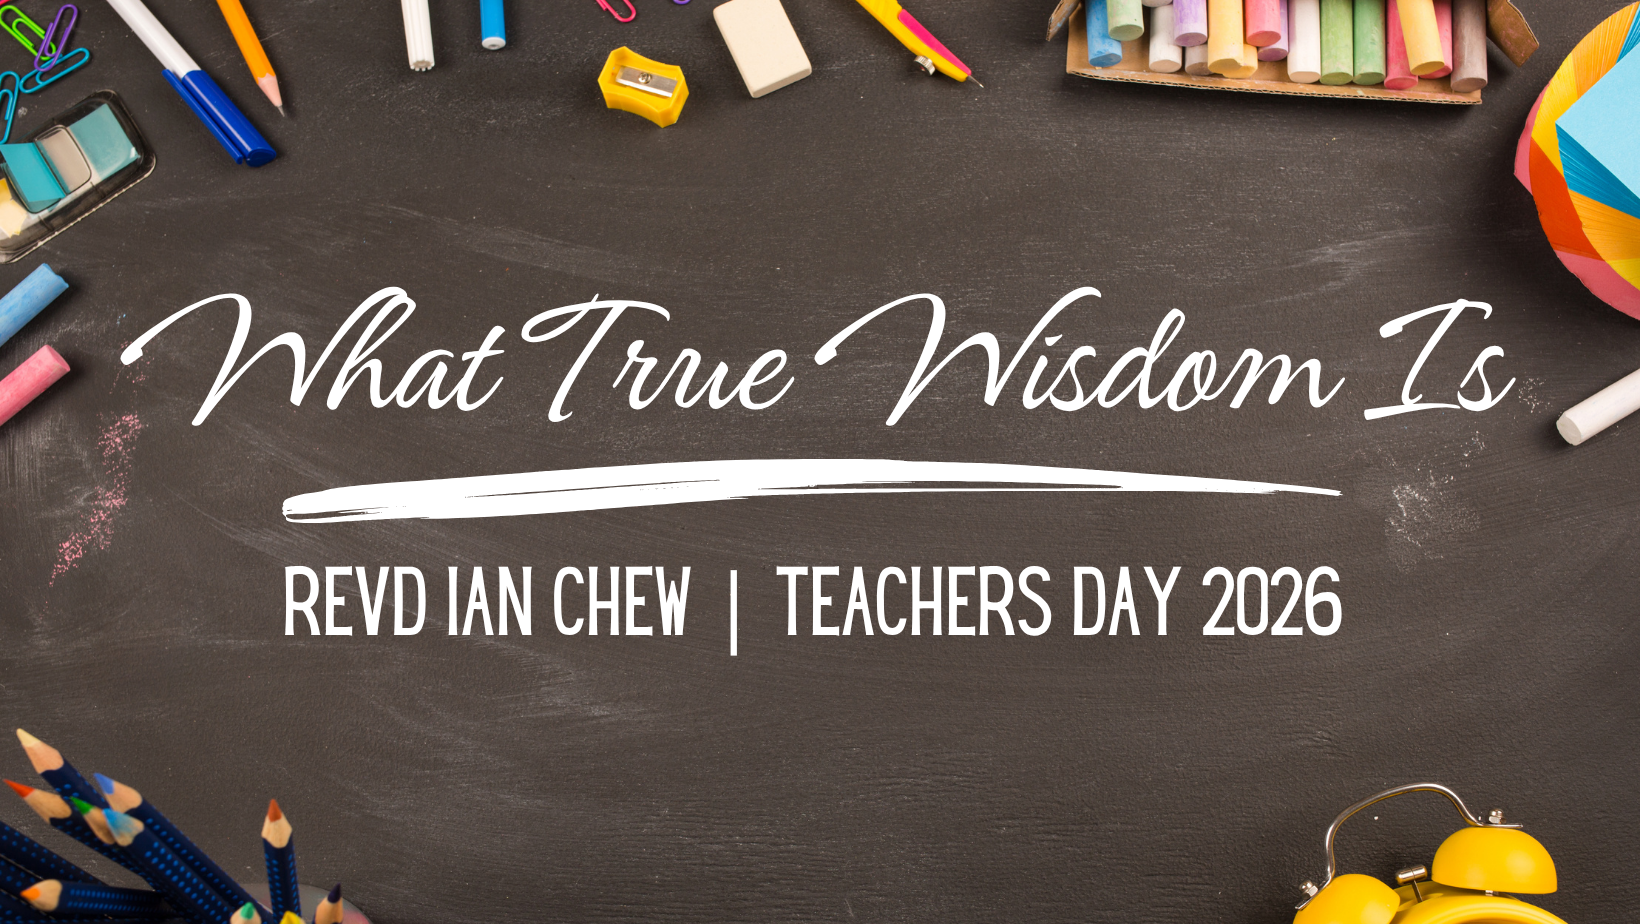 What True Wisdom Is
REVD IAN CHEW | TEACHERS DAY 2026